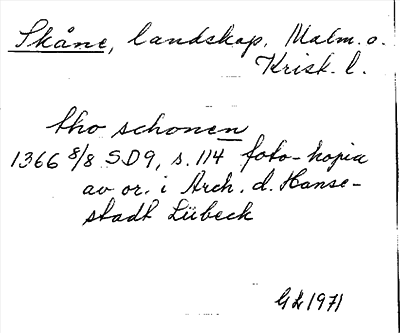 Skåne, landskap. Malm. o.
Krisk. l.
tho schonen
1366 8/8 SD9, s. 114 foto-kopia
av or. i Arch. d. Hanse-
stadt Lübeck
GL 1971